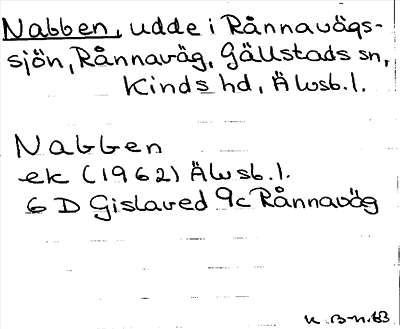 Nabben, udde i Rånnavägs-
sjön, Rånnaväg, Gällstads sn,
Kinds hd, Älvsb. l.
Nabben
ek (1962) Älvsb. l.
6 D Gislaved 9c Rånnaväg
K. B-n. 63